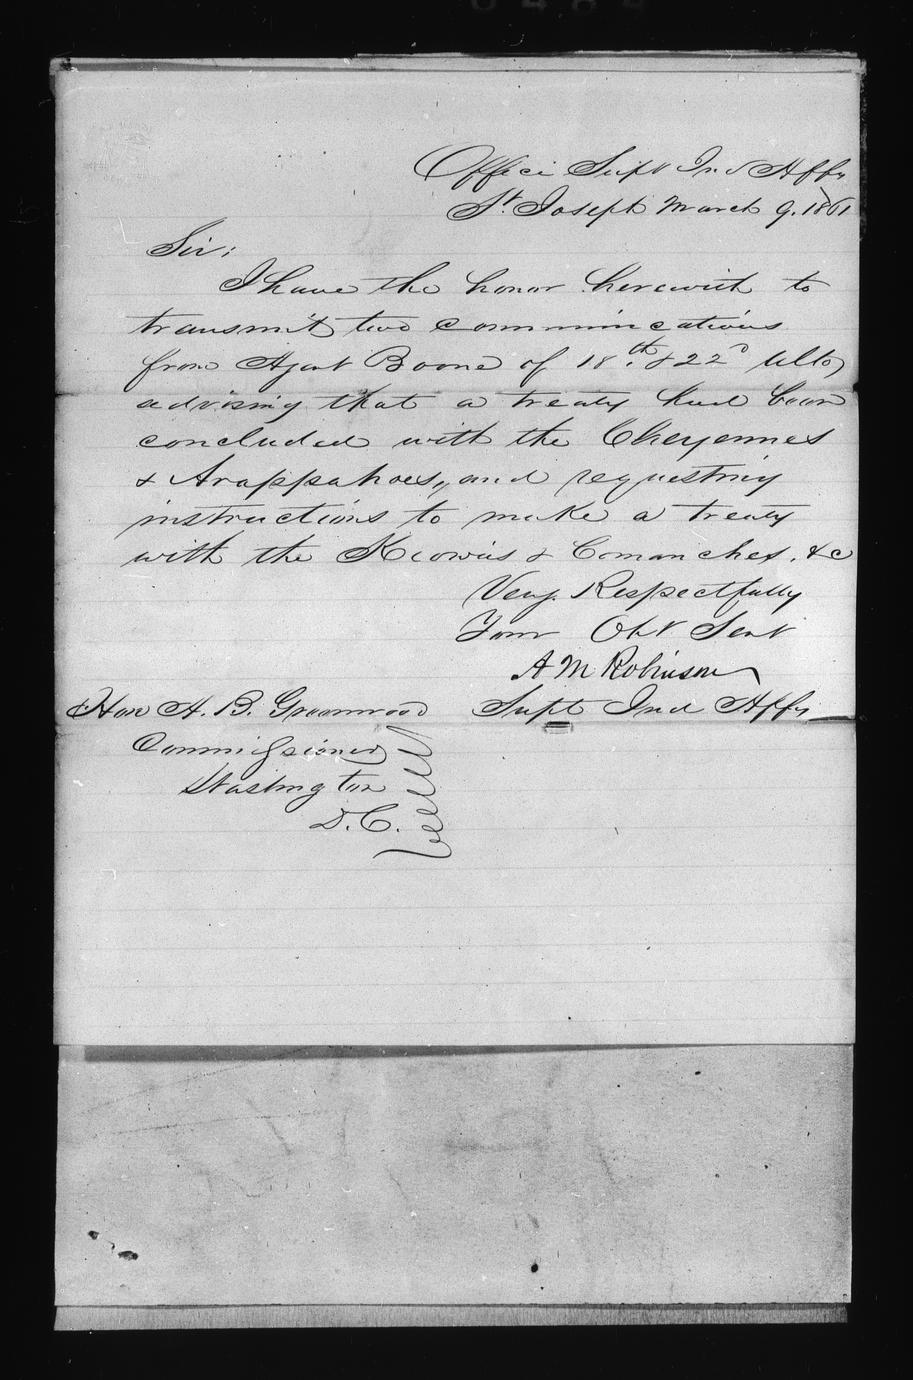 Office Supt Ind Affs
St. Joseph March 9. 1861
Sir:
I have the honor herewith to
transmit two communications
from Agent Boone of 18th & 22d Ulto,
advising that a treaty had been
concluded with the Cheyennes
& Arappahoes, and requesting
instructions to make a treaty
with the Kiowies & Comanches, &c
Very Respectfully
Your Obt Sevt
A M Robinson
Supt Ind Affs
Hon A. B. Greenwood
Commissioner
Washington
D.C.